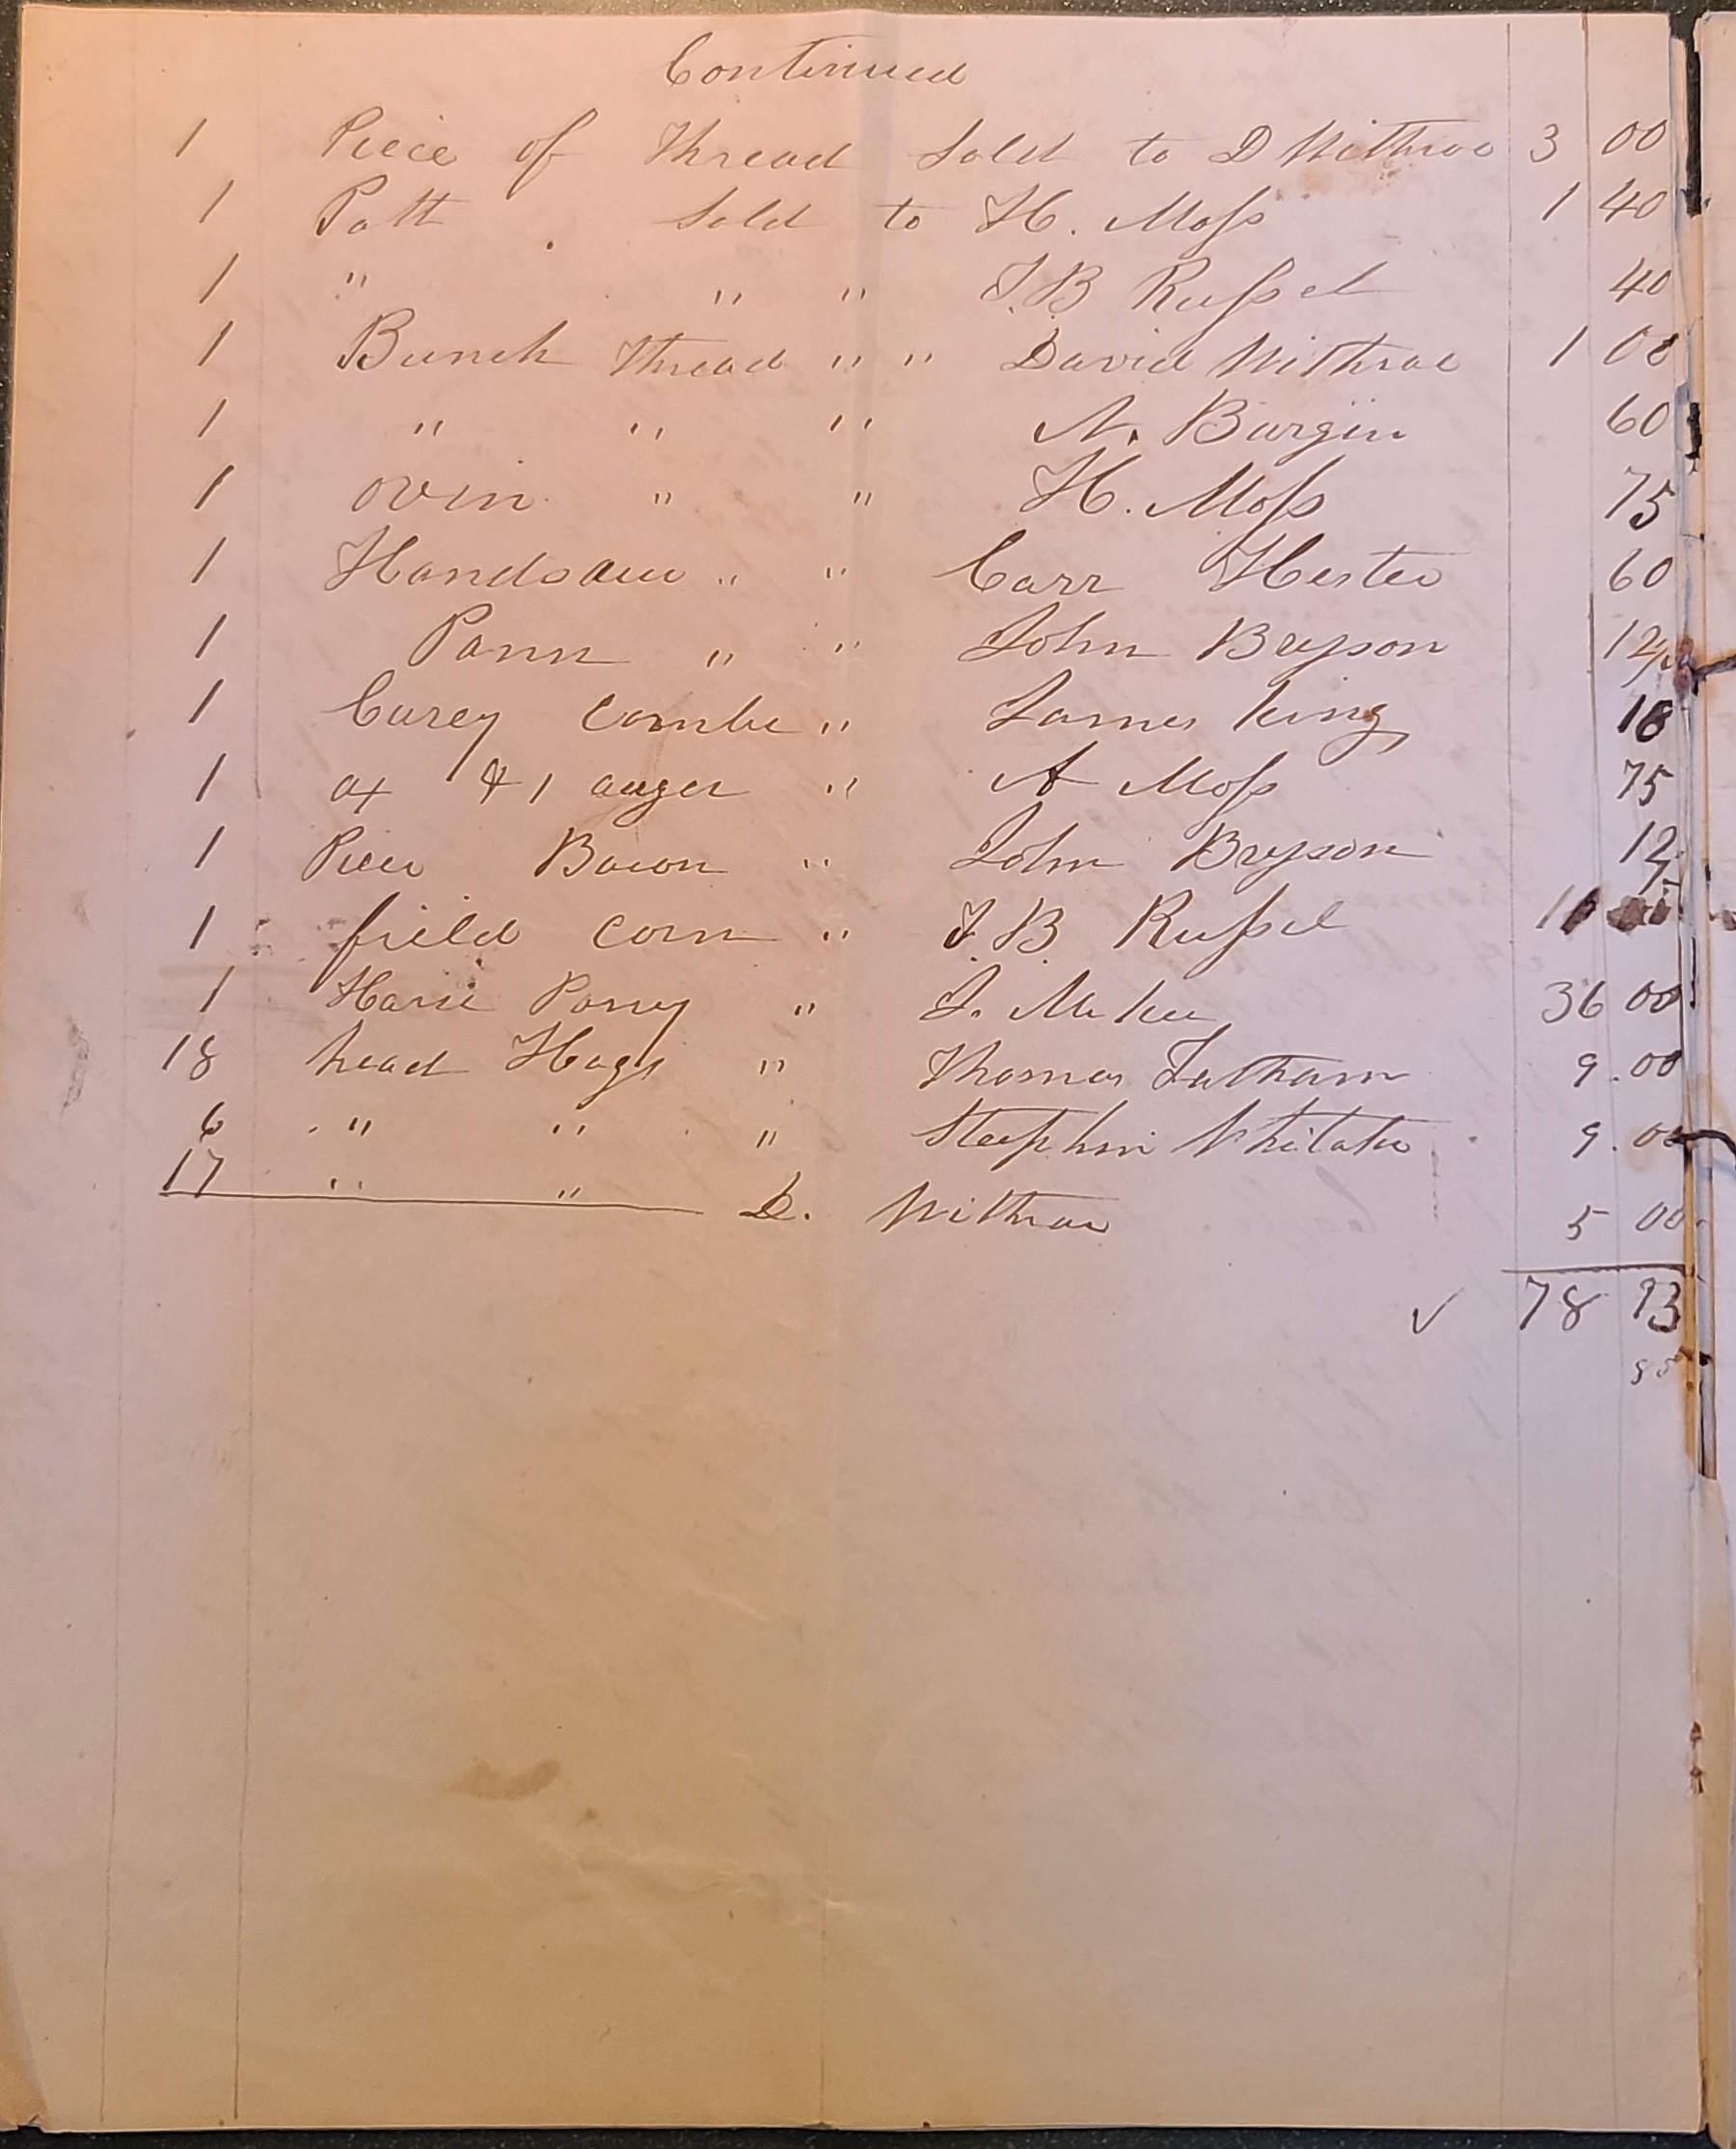 Continued
1 Piece of Thread Sold to D Withrow 3 00
1 Pott . Sold to H. Moss 1 40
1 " " " J.B Russel 40
1 Bunch Thread " " David Withrow 1 00
1 " " " A. Burgin 60
1 ovin " " H. Moss 75
1 Handsaw " " Carr Hester 60
1 Pann " " John Bryson 12½
1 Curey Combe " James King 18
1 ax & 1 auger " A Moss 75
1 Piece Bacon " John Bryson 12
1 field Corn " J.B. Russel
1 Horse Poney " J. McKee 36 00
18 head Hogs " Thomas Latham 9.00
6 " " " Stephin Whitaker 9.00
17 " " D. Withrow 5 00
✓ 78 93